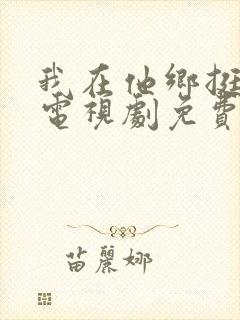 我在他鄉挺
電視劇免費
苗麗娜